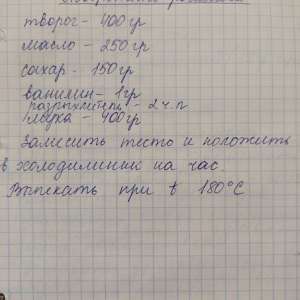 творог - 400 гр
масло - 250 гр
сахар - 150 гр
ванилин - 1 гр
разрыхлитель - 2 ч.л
мука - 400 гр
Замесить тесто и положить
в холодильник на час.
Выпекать при t 180°С